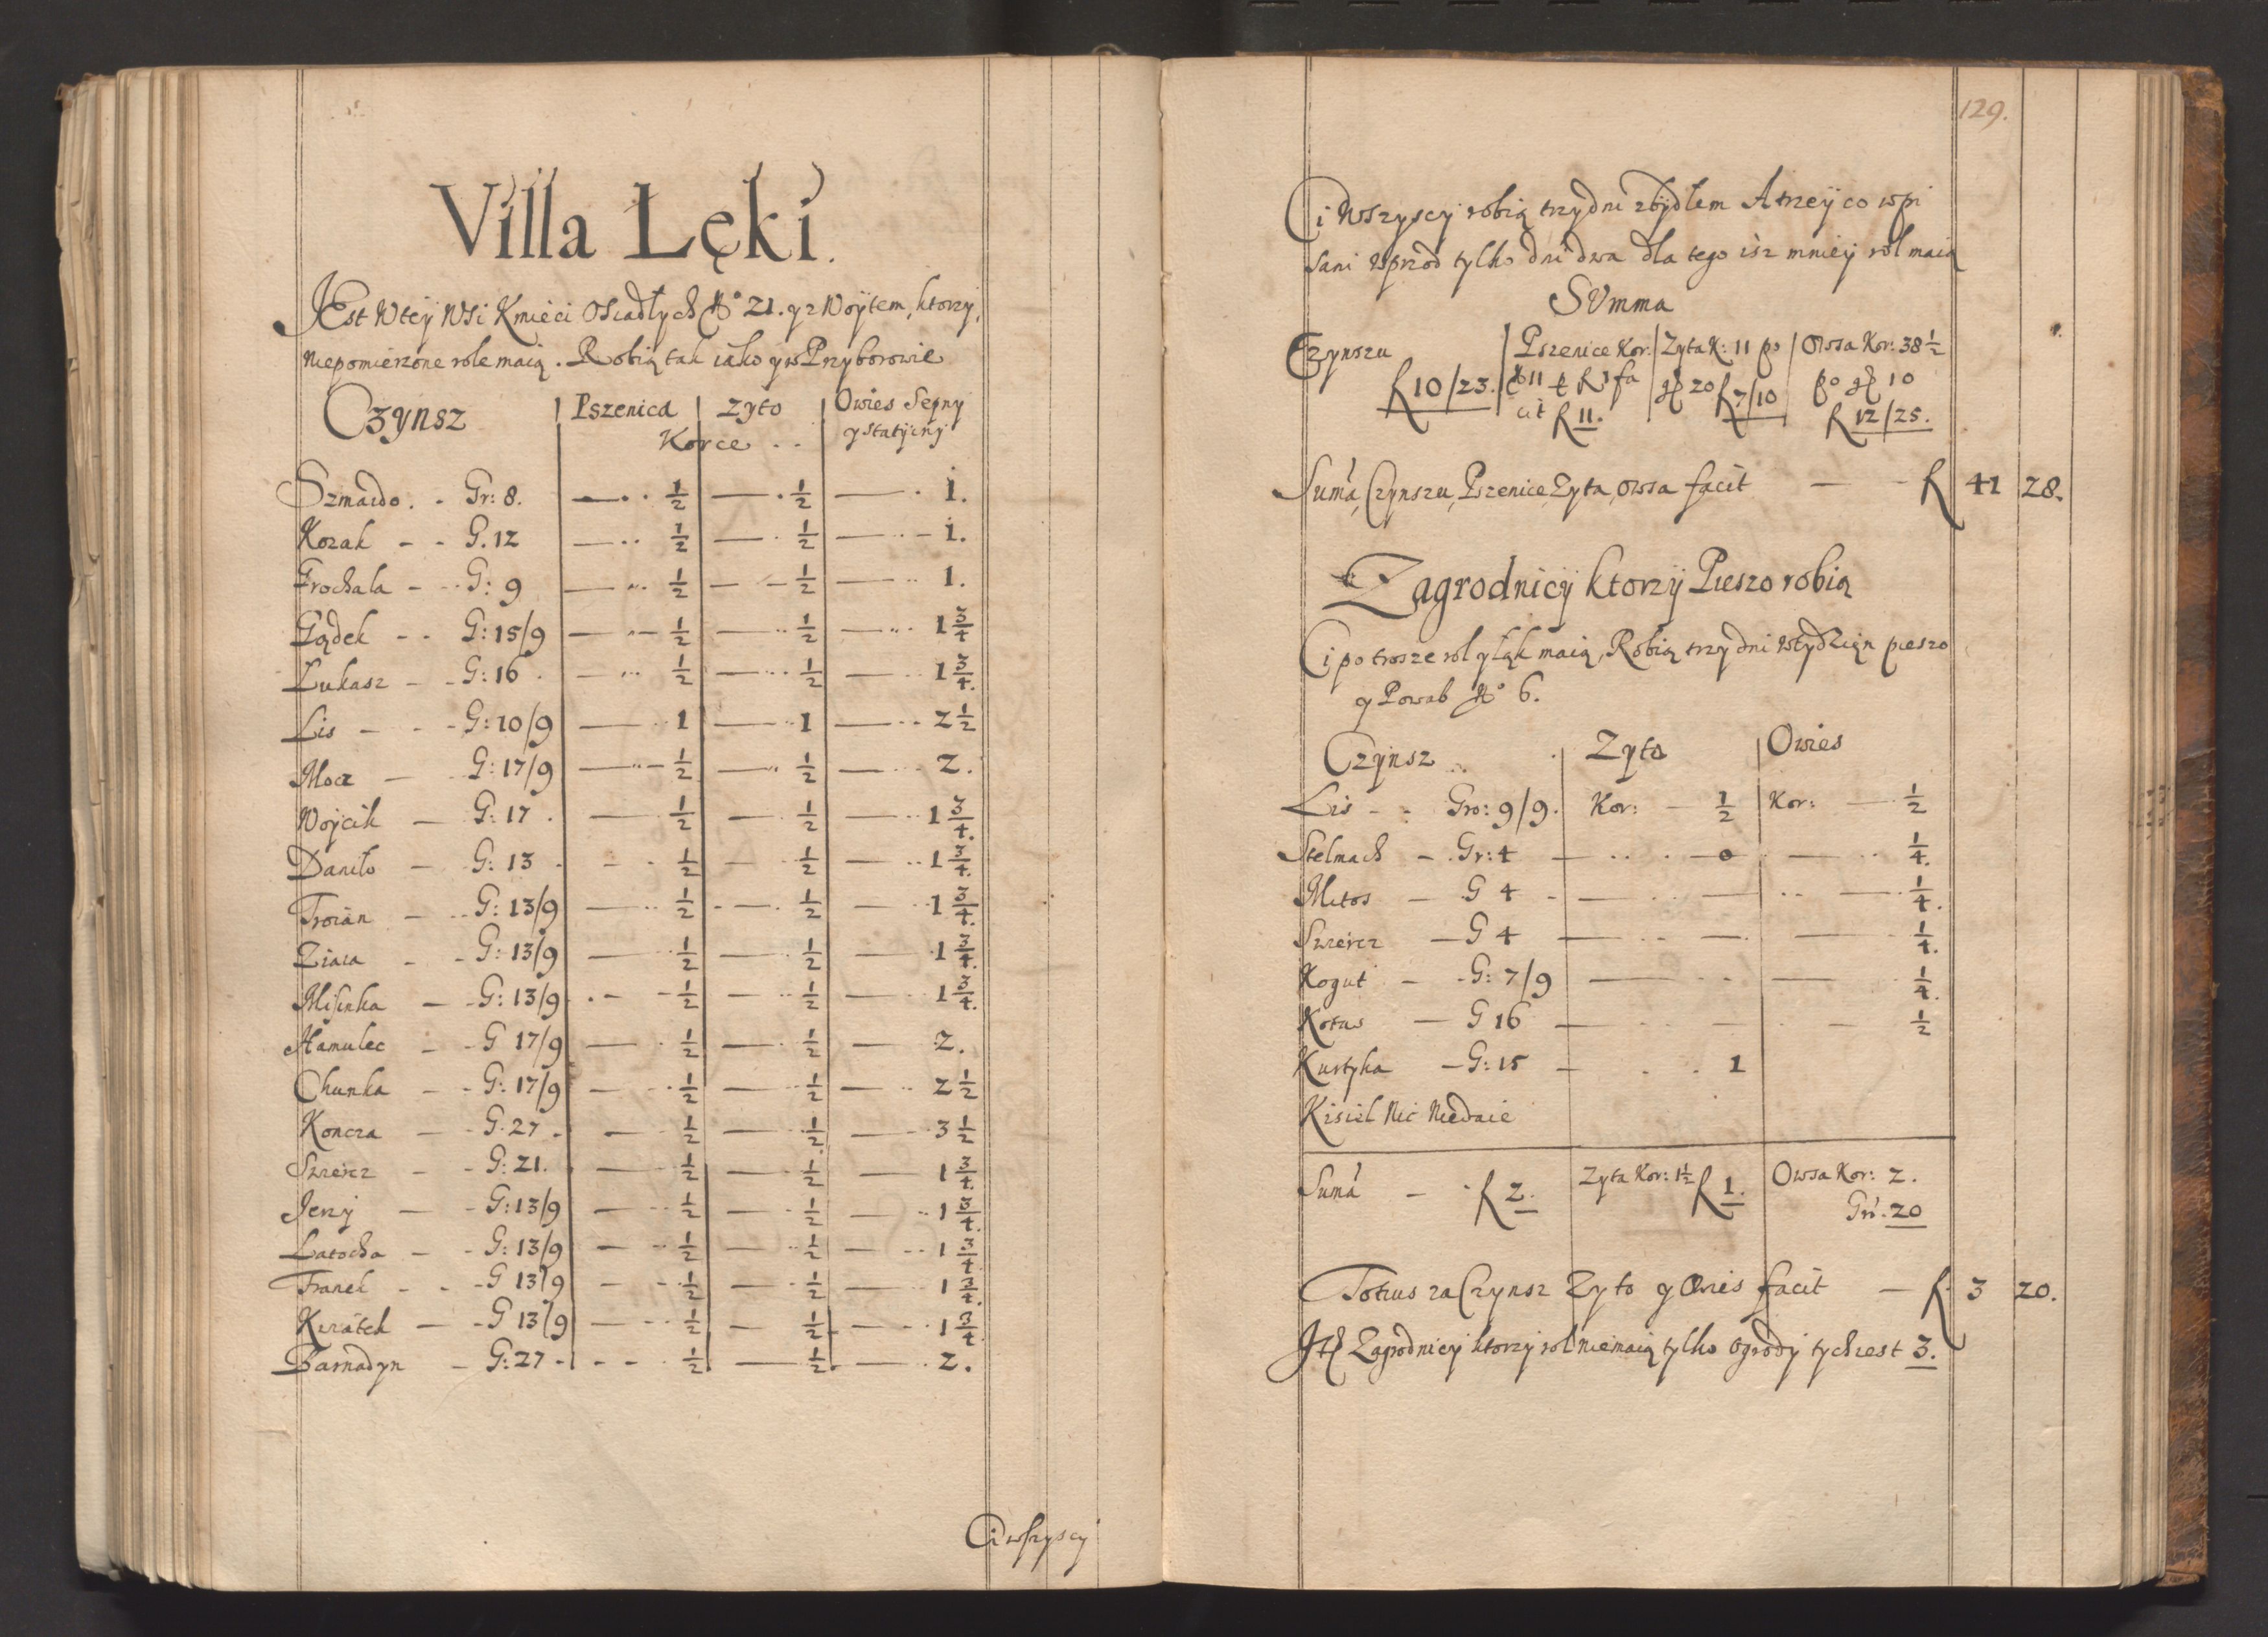 Villa Lęki.
JEst Wtey WSi Kmieci OSiadłych No 21. y z Woytem, ktorzy,
Niepomierzone role maią. Robią tak iako y w Przyborowie
Czynsz Pszenica Zyto Owies Sepny
Korce .. y Statÿcny
Szmaido. - Gr: 8. — .. ½ — . ½ — . 1.
Kozak - - G. 12 — .. ½ — . ½ — .. - 1.
Frochala - .. G: 9 — .. ½ — .. ½ — .. 1.
Gądek - - G: 15/9 — .. ½ — .. ½ — .. 1 ¾
Łukasz - - G: 16 . — .. ½ — .. ½ — .. 1 ¾.
Lis - - - G: 10/9 — .. 1 — .. 1 — .. 2 ½
Moca — G: 17/9 — .. ½ — .. ½ — .. 2.
Woycik — G: 17 . — ½ — .. ½ — .. 1 ¾.
Daniło — G: 13 - — . ½ — .. ½ — .. 1 ¾.
Troian — .. G: 13/9 — .. ½ - — . ½ — .. 1 ¾.
Ziaia - - G: 13/9 — .. ½ — .. ½ — .. 1 ¾.
Misinka — - G: 13/9 . - - ½ — .. ½ — .. 1 ¾.
Hamulec — - G 17/9 — . ½ — . ½ — 2.
Chunka — - G: 17/9 — .. ½ — .. ½ — .. 2 ½
Koncza — - G. 27 - — .. ½ — .. ½ — .. 3 ½
Szwiercz - - G: 21. — ½ — . ½ — 1 ¾.
Jerzy — - G: 13/9 — .. ½ — . ½ — .. 1 ¾.
Latocha — - G: 13/9 — .. ½ — .. ½ — .. 1 ¾
Franek - - - G 13/9 — - . ½ — . ½ — 1 ¾.
Kwiatek — - G 13/9 — .. ½ — ½ — .. 1 ¾
Barnadyn — G: 27 - - - . ½ — ½ . — .. 2.
Ci wszyscy
129.
Ci Wszyscy robią trzy dni zbydłem A trzey co wpi
sani wprzod tylko dni dwa dla tego isz mniey rol maią
SVmma
Czynszu Pszenice Kor: Zyta K: 11 po Owsa Kor: 38 ½
f 10/23. No 11 f 1 fa g 20 f 7/10 po g 10
cit f 11. f 12/25.
Suma, Czynszu, Pszenice Zyta, Owsa facit — - f 41 28.
Zagrodnicy ktorzy Pieszo robią
Ci po trosze rol y łąk maią, Robią trzy dni wtydzięn pieszo
y Powab No 6.
Czynsz .. Zyto Owies
Lis - - Gro: 9/9. Kor: — ½ Kor: — ½
Stelmach - . Gr: 4 — .. . — 0 — .. ¼.
Mitos — G 4 - — .. — .. — . ¼.
Szwiercz — G 4 — .. — . — ¼.
Kogut — - G: 7/9 — - - — .. ¼.
Kotus — G 16 — . — . — ½
Kurtyka — G: 15 — . . . 1
Kisiel Nic Niedaie
Suma — . f 2. Zyta Kor: 1½ f 1. Owsa Kor: 2.
Gr. 20
Totius za Czynsz Zyto y Owies facit — f 3 20.
It Zagrodnicy ktorzy rol niemaią tylko ogrody tych iest 3.